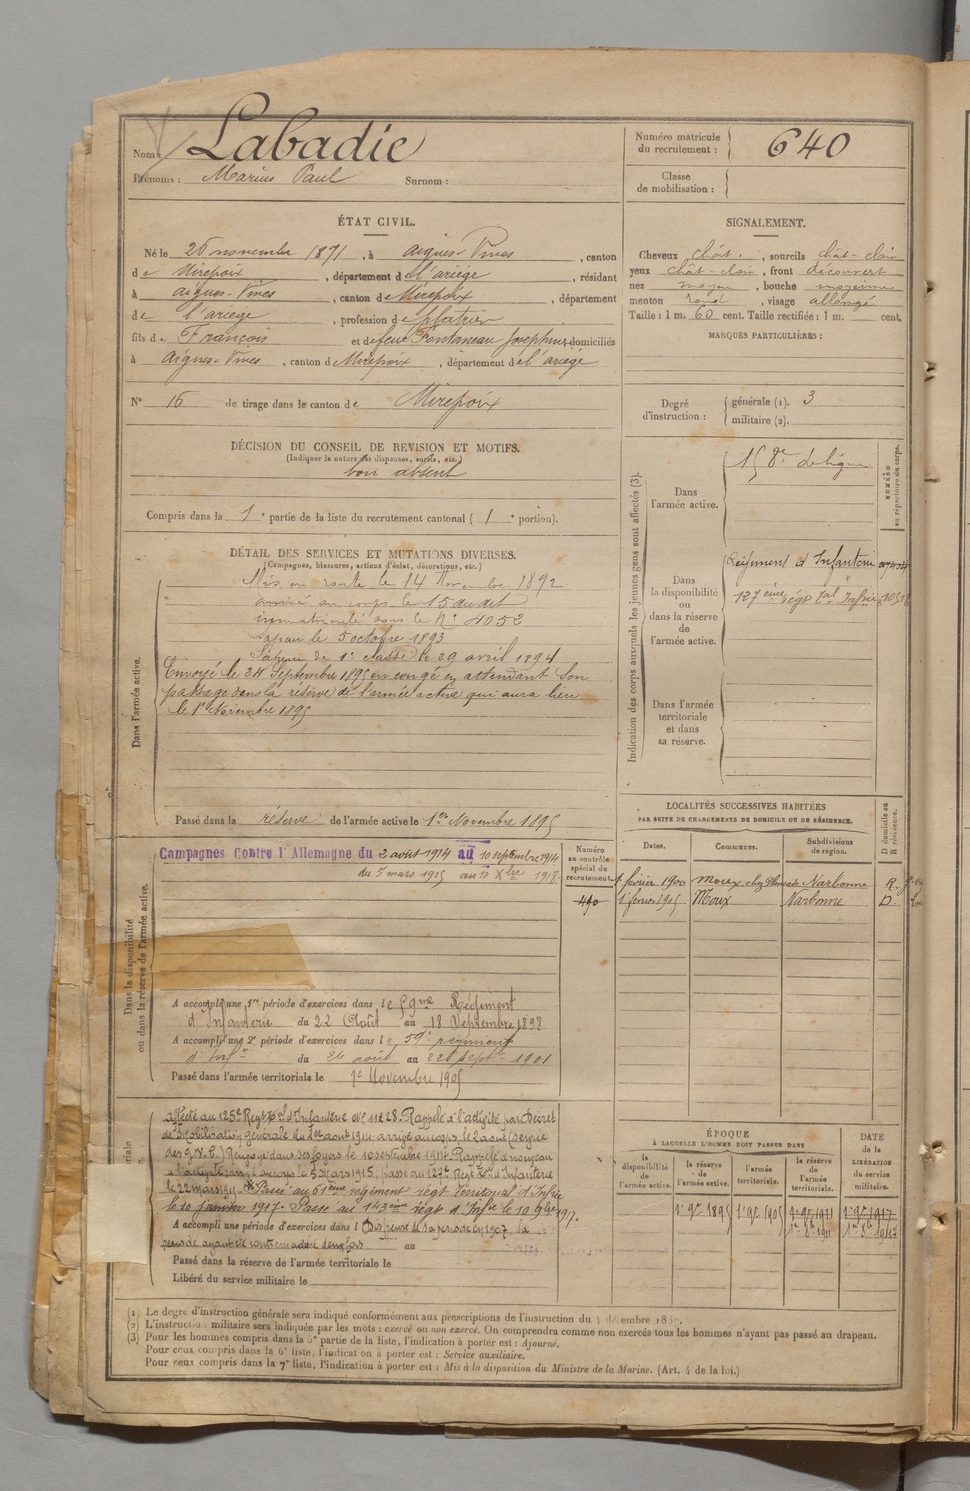 Nom : Labadie
Prénoms : Marius Paul Surnom :
Numéro matricule du recrutement : 640
Classe de mobilisation :
ÉTAT CIVIL.
Né le 26 novembre 1871, à Aigues-Vives, canton
de Mirepoix, département de l'ariege, résidant
à Aigues-Vives, canton de Mirepoix, département
de l'ariege, profession de platrier
fils de François et de feue Fontaneau Josephine domiciliés
à Aigues-Vives, canton de Mirepoix, département de l'ariege
N° 16 de tirage dans le canton de Mirepoix
SIGNALEMENT.
Cheveux chât., sourcils chât-clair
yeux chât-clair, front découvert
nez moyen, bouche moyenne
menton rond, visage allongé
Taille : 1 m. 60 cent. Taille rectifiée : 1 m. cent.
MARQUES PARTICULIÈRES :
Degré d'instruction : générale (1). 3
militaire (2).
DÉCISION DU CONSEIL DE REVISION ET MOTIFS.
(Indiquer la nature des dispenses, sursis, etc.)
bon absent
Compris dans la 1e partie de la liste du recrutement cantonal (1e portion).
DÉTAIL DES SERVICES ET MUTATIONS DIVERSES.
(Campagnes, blessures, actions d'éclat, décorations, etc.)
Dans l'armée active.
Mis en route le 14 Novembre 1892
arrivé au corps le 15 du dit
immatriculé sous le N° 4052
sapeur le 5 octobre 1893
Sapeur de 1e classe le 29 avril 1894
Envoyé le 24 Septembre 1895 en congé en attendant son
passage dans la réserve de l'armée active qui aura lieu
le 1er Novembre 1895
Passé dans la réserve de l'armée active le 1er Novembre 1895
Indication des corps auxquels les jeunes gens sont affectés (3).
NUMÉRO au répertoire du corps.
Dans l'armée active.
15 8e de ligne
Dans la disponibilité ou dans la réserve de l'armée active.
Régiment d'Infanterie
127ème régt tal Infrie
Dans l'armée territoriale et dans sa réserve.
LOCALITÉS SUCCESSIVES HABITÉES
PAR SUITE DE CHANGEMENTS DE DOMICILE OU DE RÉSIDENCE.
Dates. Communes. Subdivisions de région. D domicile ou R résidence.
1 février 1900 Moux chez Narbonne R.
1 fevrier 1905 Moux Narbonne D.
Dans la disponibilité ou dans la réserve de l'armée active.
Campagnes Contre l'Allemagne du 2 août 1914 au 10 septembre 1914
du 5 mars 1915 au 10 Xbre 1918.
Numéro au contrôle spécial du recrutement.
490
A accompli une 1re période d'exercices dans le 59me Régiment
d'Infanterie du 22 Août au 18 Septembre 1898
A accompli une 2e période d'exercices dans le 59e régiment
d'Infie du 26 août au 22 septe 1901
Passé dans l'armée territoriale le 1er Novembre 1905
affecté au 125e Regt tal d'Infanterie N° 11228. Rappelé à l'activité par Décret
de Mobilisation générale du 1er aout 1914 arrivé au corps le 2 aout (service
des G.V.C.) Renvoyé dans ses foyers le 10 septembre 1914. Rappelé à nouveau
à l'activité arrivé au corps le 5 mars 1915. passé au 127e Regt tal d'Infanterie
le 22 mars 1915. Passé au 61ème régiment régt territorial d'Infie
le 10 janvier 1917. Passé au 143ème régt d'Infie le 10 9bre 1917.
A accompli une période d'exercices dans l Dispensé de sa periode en 1907, la
periode ayant été contremandée deux fois au
Passé dans la réserve de l'armée territoriale le
Libéré du service militaire le
ÉPOQUE
À LAQUELLE L'HOMME DOIT PASSER DANS
la disponibilité de l'armée active. la réserve de l'armée active. l'armée territoriale. la réserve de l'armée territoriale.
DATE de la LIBÉRATION du service militaire.
1er 9e 1895 1er 9e 1905 1er 9e 1911 1er 9e 1917
1er 8e 1911 1er 8e 1917
(1) Le degré d'instruction générale sera indiqué conformément aux prescriptions de l'instruction du 4 décembre 1889.
(2) L'instruction militaire sera indiquée par les mots : exercé ou non exercé. On comprendra comme non exercés tous les hommes n'ayant pas passé au drapeau.
(3) Pour les hommes compris dans la 5e partie de la liste, l'indication à porter est : Ajourné.
Pour ceux compris dans la 6e liste, l'indication à porter est : Service auxiliaire.
Pour ceux compris dans la 7e liste, l'indication à porter est : Mis à la disposition du Ministre de la Marine. (Art. 4 de la loi.)